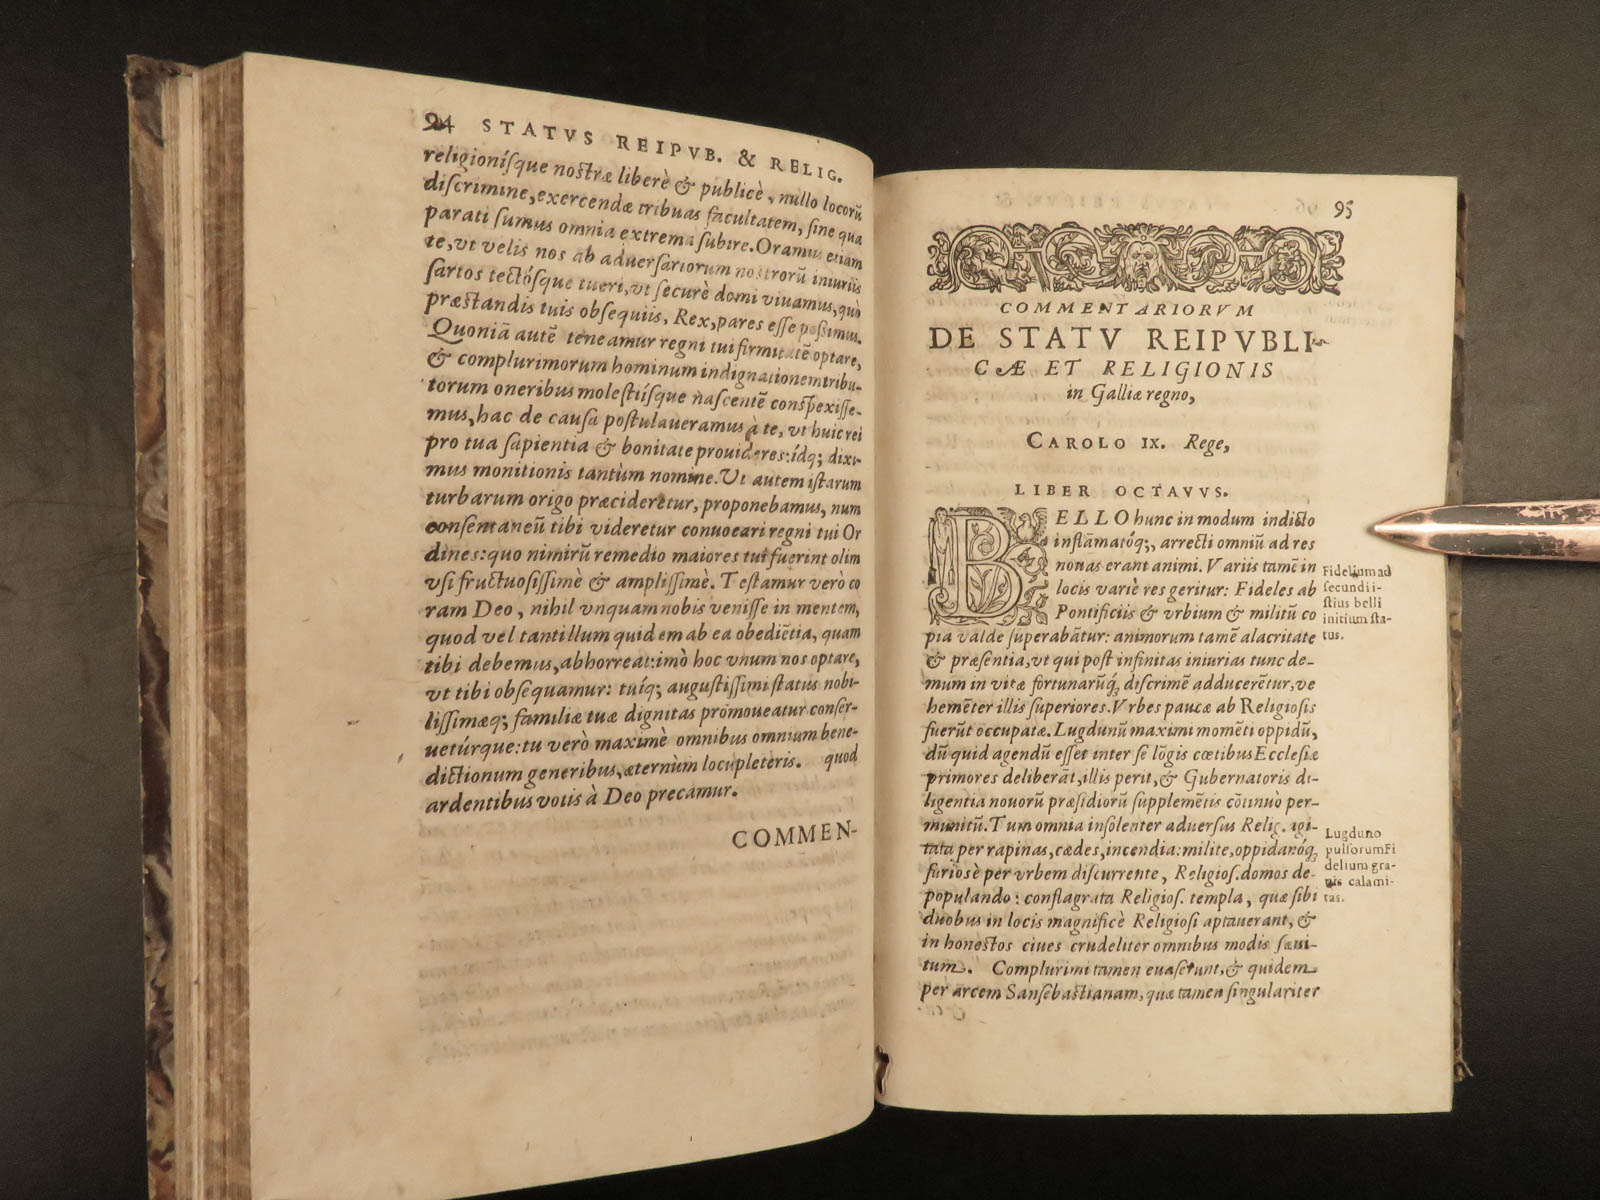 94 STATVS REIPVB. & RELIG.
religionísque nostræ liberè & publicè, nullo locorũ
discrimine, exercendæ tribuas facultatem, sine qua
parati sumus omnia extrema subire. Oramus etiam
te, vt velis nos ab aduersariorum nostrorũ iniuriis
sartos tectósque tueri, vt securè domi viuamus, quò
præstandis tuis obsequiis, Rex, pares esse possimus.
Quoniã autẽ teneamur regni tui firmitatẽ optare,
& complurimorum hominum indignationem tribu-
torum oneribus molestiísque nascentẽ conspexisse-
mus, hac de causa postulaueramus à te, vt huic rei
pro tua sapientia & bonitate prouideres: ídq; dixi-
mus monitionis tantùm nomine. Vt autem istarum
turbarum origo præcideretur, proponebamus, num
consentaneũ tibi videretur conuocari regni tui Or
dines: quo nimirũ remedio maiores tui fuerint olim
vsi fructuosissimè & amplissimè. Testamur verò co
ram Deo, nihil vnquam nobis venisse in mentem,
quod vel tantillum quidem ab ea obediẽtia, quam
tibi debemus, abhorreat: imò hoc vnum nos optare,
vt tibi obsequamur: tuíq; augustissimi status nobi-
lissimæq; familiæ tuæ dignitas promoueatur conser-
uetúrque: tu verò maximè omnibus omnium bene-
dictionum generibus, æternùm locupleteris. quod
ardentibus votis à Deo precamur.
COMMEN-
95
COMMENTARIORVM
DE STATV REIPVBLI-
CÆ ET RELIGIONIS
in Galliæ regno,
CAROLO IX. Rege,
LIBER OCTAVVS.
BELLO hunc in modum indicto
inflãmatóq;, arrecti omniũ ad res
nouas erant animi. Variis tamẽ in
locis variè res geritur: Fideles ab
Pontificiis & vrbium & militũ co
pia valde superabãtur: animorum tamẽ alacritate
& præsentia, vt qui post infinitas iniurias tunc de-
mum in vitæ fortunarũq́; discrimẽ adducerẽtur, ve
hemẽter illis superiores. Vrbes paucæ ab Religiosis
fuerũt occupatæ. Lugdunũ maximi momẽti oppidũ,
dũ quid agendũ esset inter se lõgis cœtibus Ecclesiæ
primores deliberãt, illis perit, & Gubernatoris di-
ligentia nouorũ præsidiorũ supplemẽtis cõtinuò per-
munitũ. Tum omnia insolenter aduersus Relig. agi-
tata per rapinas, cædes, incendia: milite, oppidanóq;
furiosè per vrbem discurrente, Religios. domos de-
populando: conflagrata Religios. templa, quæ sibi
duobus in locis magnificè Religiosi aptauerant, &
in honestos ciues crudeliter omnibus modis sæui-
tum. Complurimi tamen euaserunt, & quidem
per arcem Sansebastianam, quæ tamen singulariter
Fidelium ad
secundi i-
stius belli
initium sta-
tus.
Lugduno
pulsorum Fi
delium gra-
uis calami-
tas.